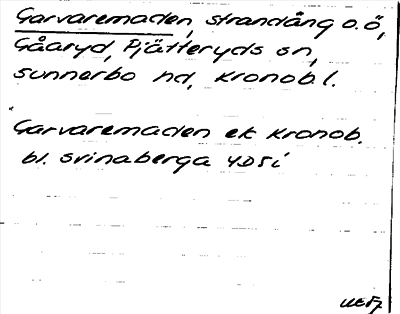 Garvaremaden, strandäng o. ö,
Gåaryd, Pjätteryds sn,
sunnerbo hd, Kronob. l.
Garvaremaden ek Kronob.
bl. svinaberga 4D5i